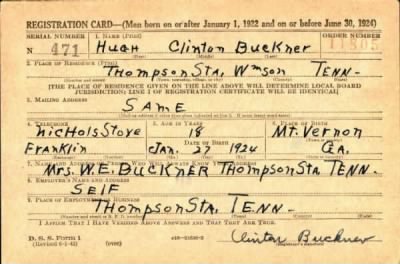 REGISTRATION CARD—(Men born on or after January 1, 1922 and on or before June 30, 1924)
SERIAL NUMBER 1. NAME (Print) ORDER NUMBER
N 471 Hugh Clinton Buckner 11805
(First) (Middle) (Last)
2. PLACE OF RESIDENCE (Print)
Thompson Sta. Wmson Tenn-
(Number and street) (Town, township, village, or city) (County) (State)
[THE PLACE OF RESIDENCE GIVEN ON THE LINE ABOVE WILL DETERMINE LOCAL BOARD
JURISDICTION; LINE 2 OF REGISTRATION CERTIFICATE WILL BE IDENTICAL]
3. MAILING ADDRESS
SAME
4. TELEPHONE 5. AGE IN YEARS 6. PLACE OF BIRTH
Nichols Store 18 Mt. Vernon
DATE OF BIRTH
Franklin Jan. 27 1924 Ga.
7. NAME AND ADDRESS OF PERSON WHO WILL ALWAYS KNOW YOUR ADDRESS
Mrs. W.E. Buckner Thompson Sta. Tenn.
8. EMPLOYER'S NAME AND ADDRESS
Self
9. PLACE OF EMPLOYMENT OR BUSINESS
Thompson Sta. Tenn-
I AFFIRM THAT I HAVE VERIFIED ABOVE ANSWERS AND THAT THEY ARE TRUE.
D. S. S. Form 1
(Revised 6-1-42) (over) Clinton Buckner